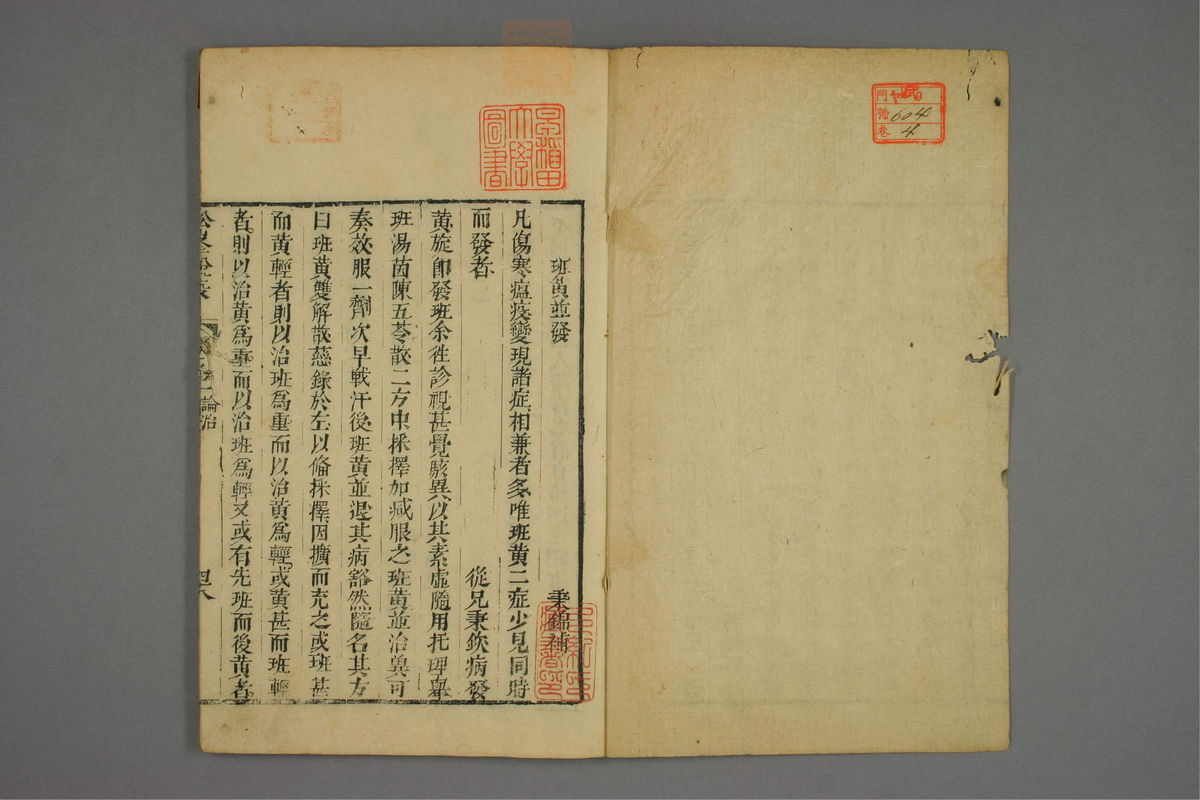 門 ヤ 9
號 604
卷 4
早稲田
大學
圖書
班黃並發
秉錦補
凡傷寒瘟疫變現諸症相兼者多唯班黃二症少見同時
而發者 從兄秉欽病發
黃旋卽發班余徃診視甚覺駭異以其素虛隨用托裡舉
班湯茵陳五苓散二方中採擇加减服之班黃並治冀可
奏效服一劑次早戰汗後班黃並退其病豁然隨名其方
曰班黃雙解散慈錄於左以俻採擇因擴而充之或班甚
而黃輕者則以治班爲重而以治黃爲輕或黃甚而班輕
者則以治黃爲重而以治班爲輕又或有先班而後黃者
一論治
四八